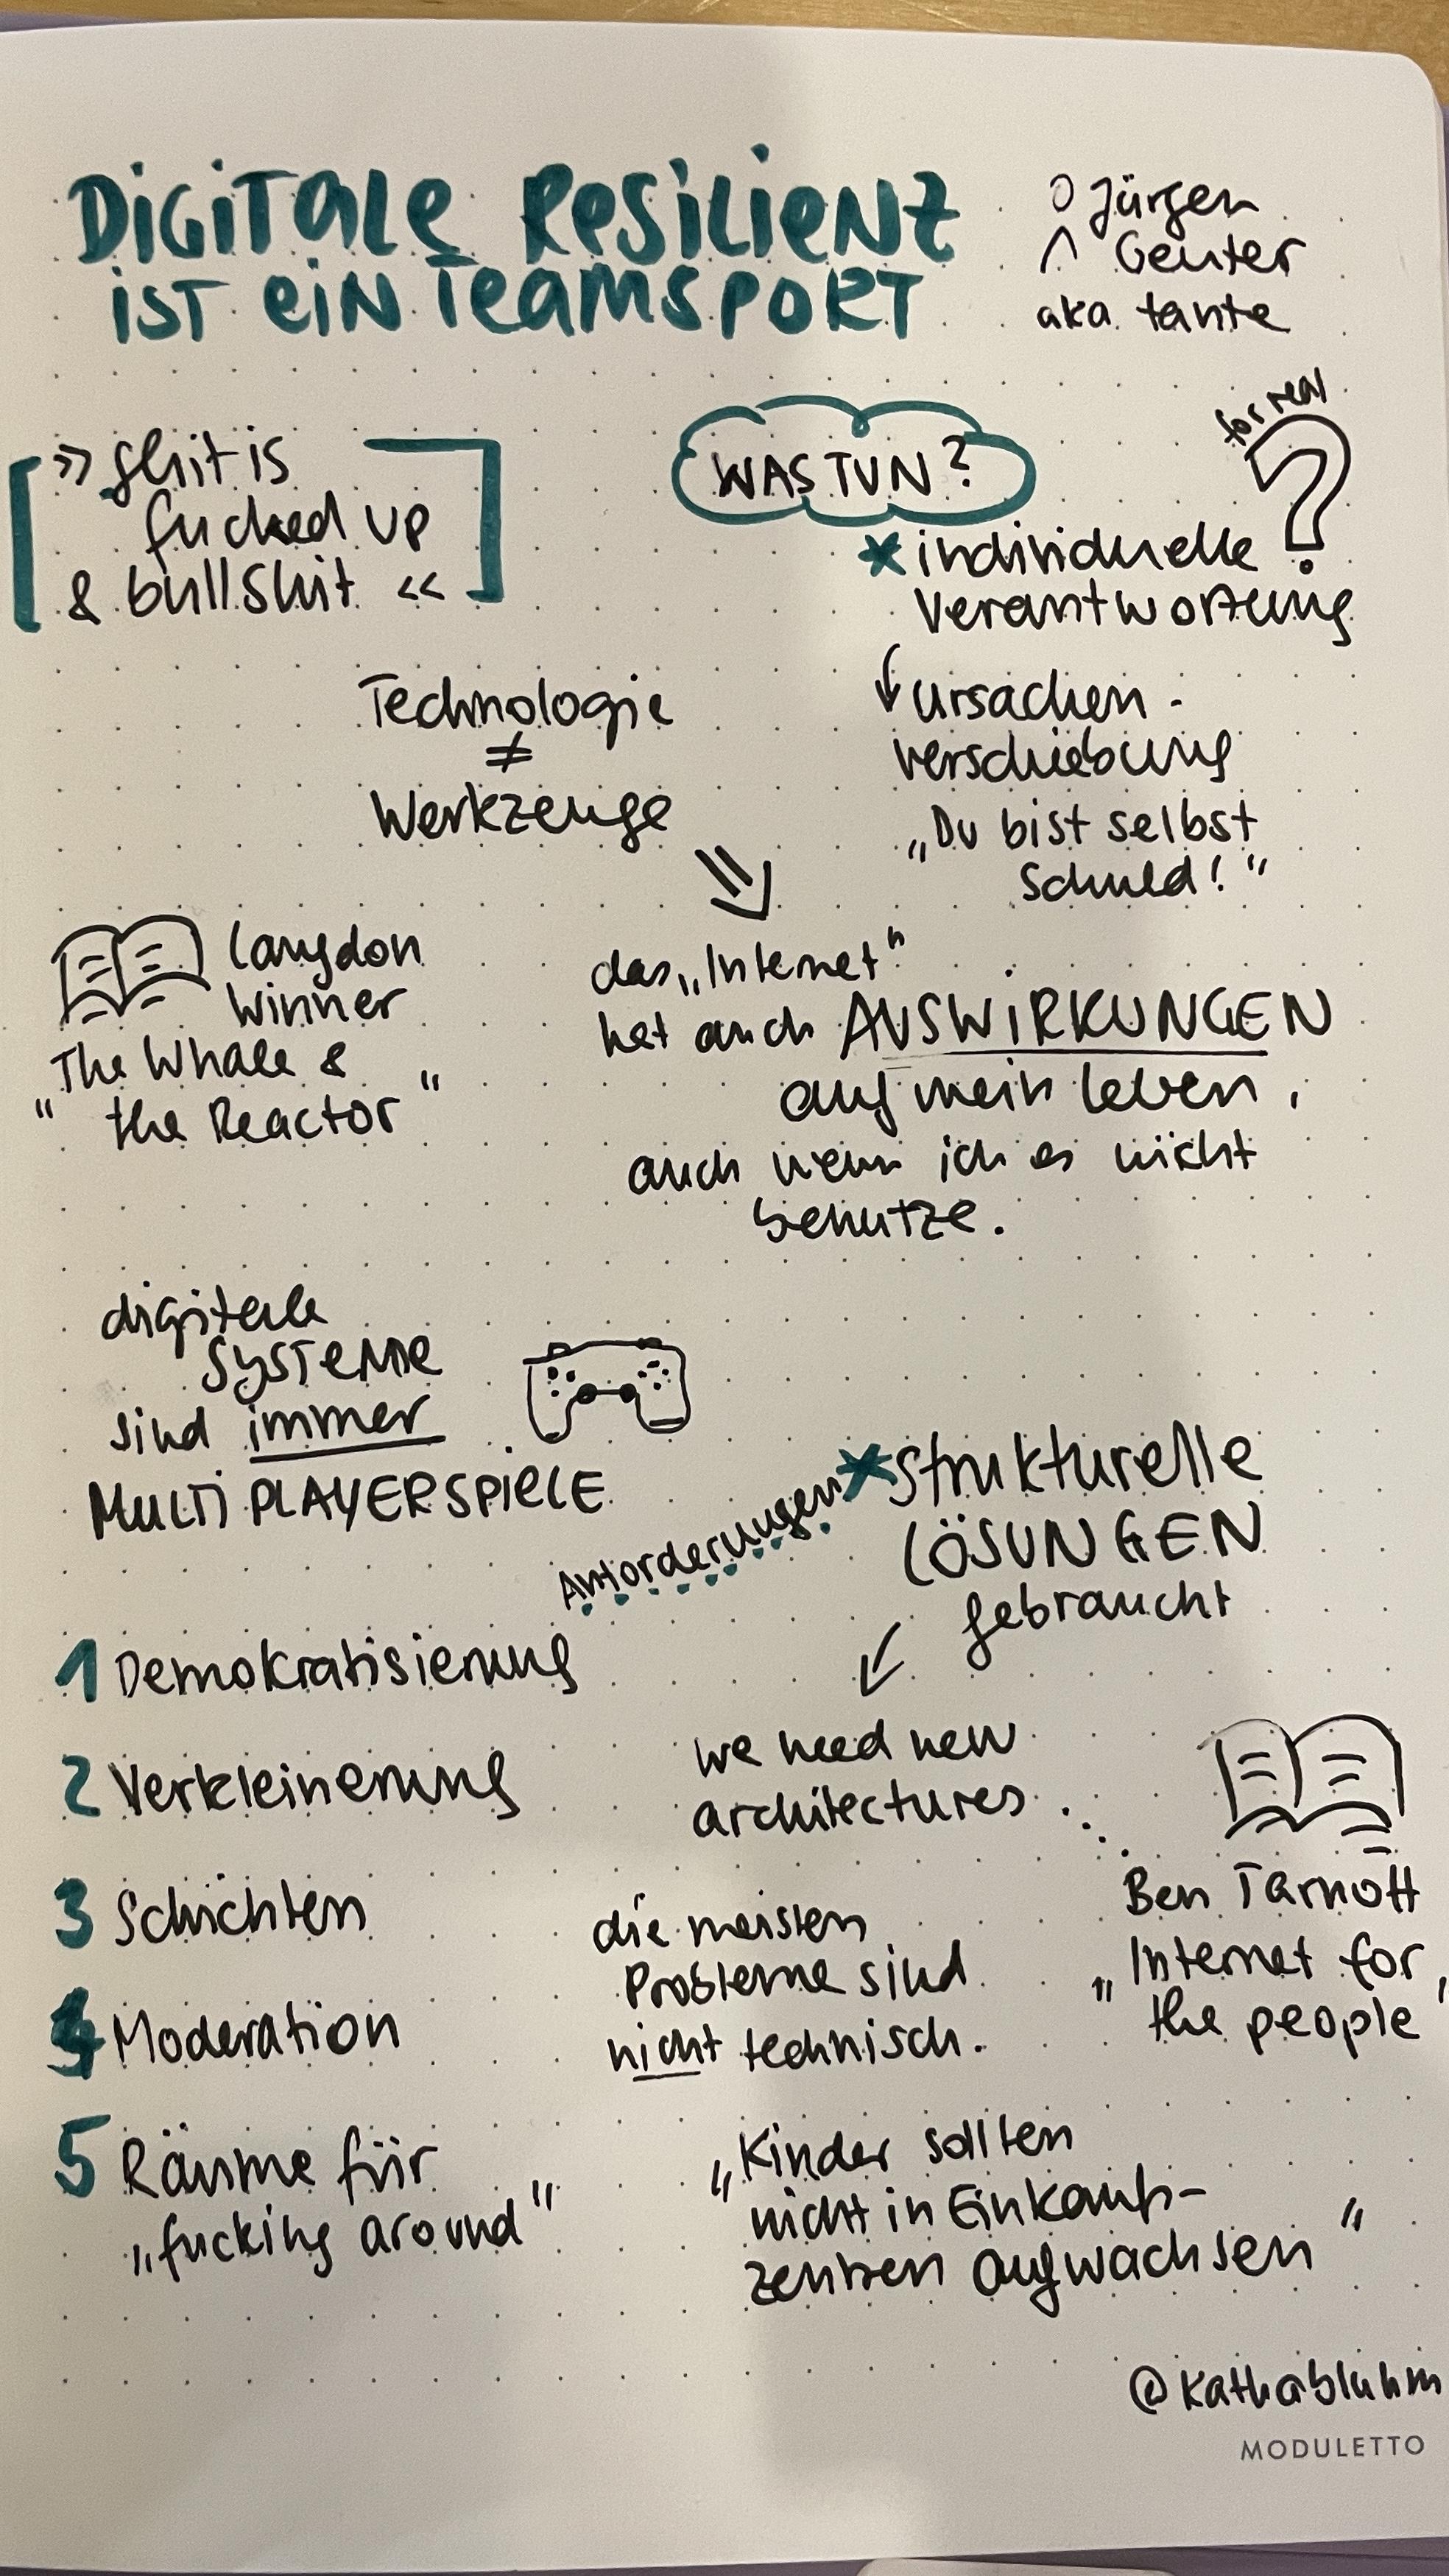 DiGiTale ResilienZ
iST eiN TeamspoRT
Jürgen
Geuter
aka tante
» shit is
fucked up
& bullshit «
WAS TUN?
for real
?
* individuelle
Verantwortung
Ursachen-
verschiebung
„Du bist selbst
Schuld!“
Technologie
≠
Werkzeuge
Langdon
Winner
The Whale &
" the Reactor "
das „Internet“
hat auch AUSWiRKUNGEN
auf mein Leben,
auch wenn ich es nicht
benutze.
digitale
Systeme
sind immer
MULTiPLAYERSPieLE
Anforderungen
* strukturelle
LÖSUNGEN
gebraucht
1 Demokratisierung
2 Verkleinerung
3 Schichten
4 Moderation
5 Räume für
„fucking around“
we need new
architectures
Ben Tarnoff
„Internet for
the people“
die meisten
Probleme sind
nicht technisch.
„Kinder sollten
nicht in Einkaufs-
zentren aufwachsen“
@kathabluhm
MODULETTO